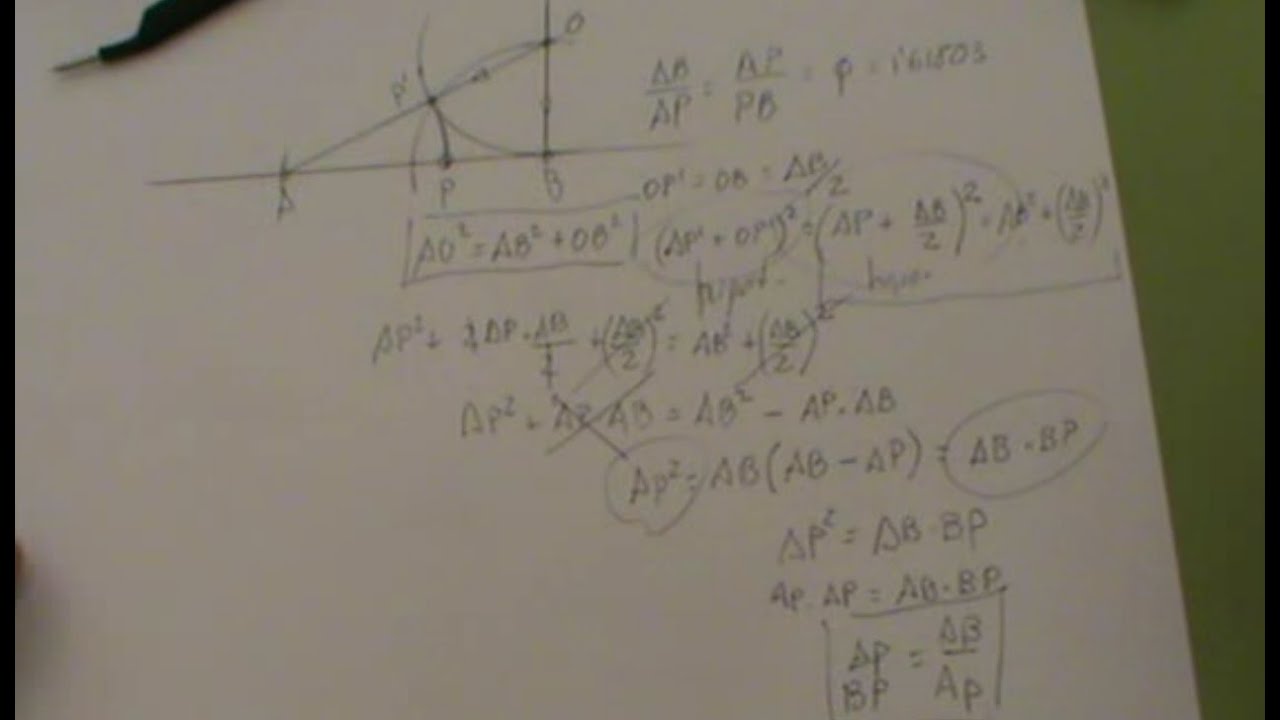 O
P'
A P B
AB/AP = AP/PB = φ = 1'61803
OP' = OB = AB/2
AO² = AB² + OB² (AP' + OP')² = (AP + AB/2)² = AB² + (AB/2)²
AP² + 2AP · AB/2 + (AB/2)² = AB² + (AB/2)²
AP² + AP · AB = AB² - AP · AB
AP² = AB(AB - AP) = AB · BP
AP² = AB · BP
AP · AP = AB · BP
AP/BP = AB/AP